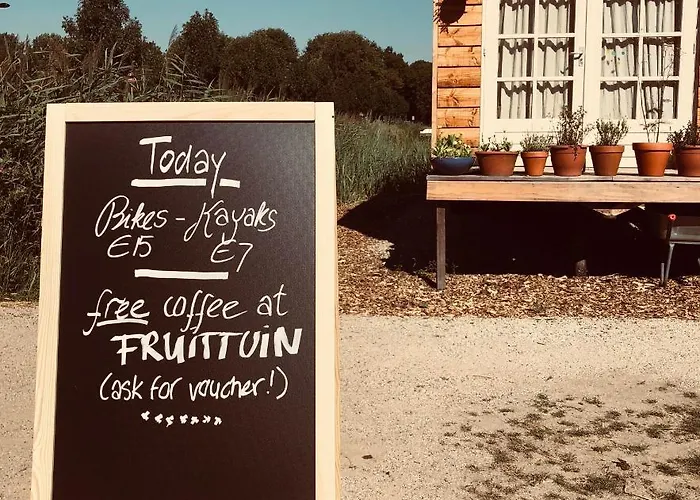 Today
Bikes - Kayaks
€15 €7
free coffee at
FRUITTUIN
(ask for voucher!)